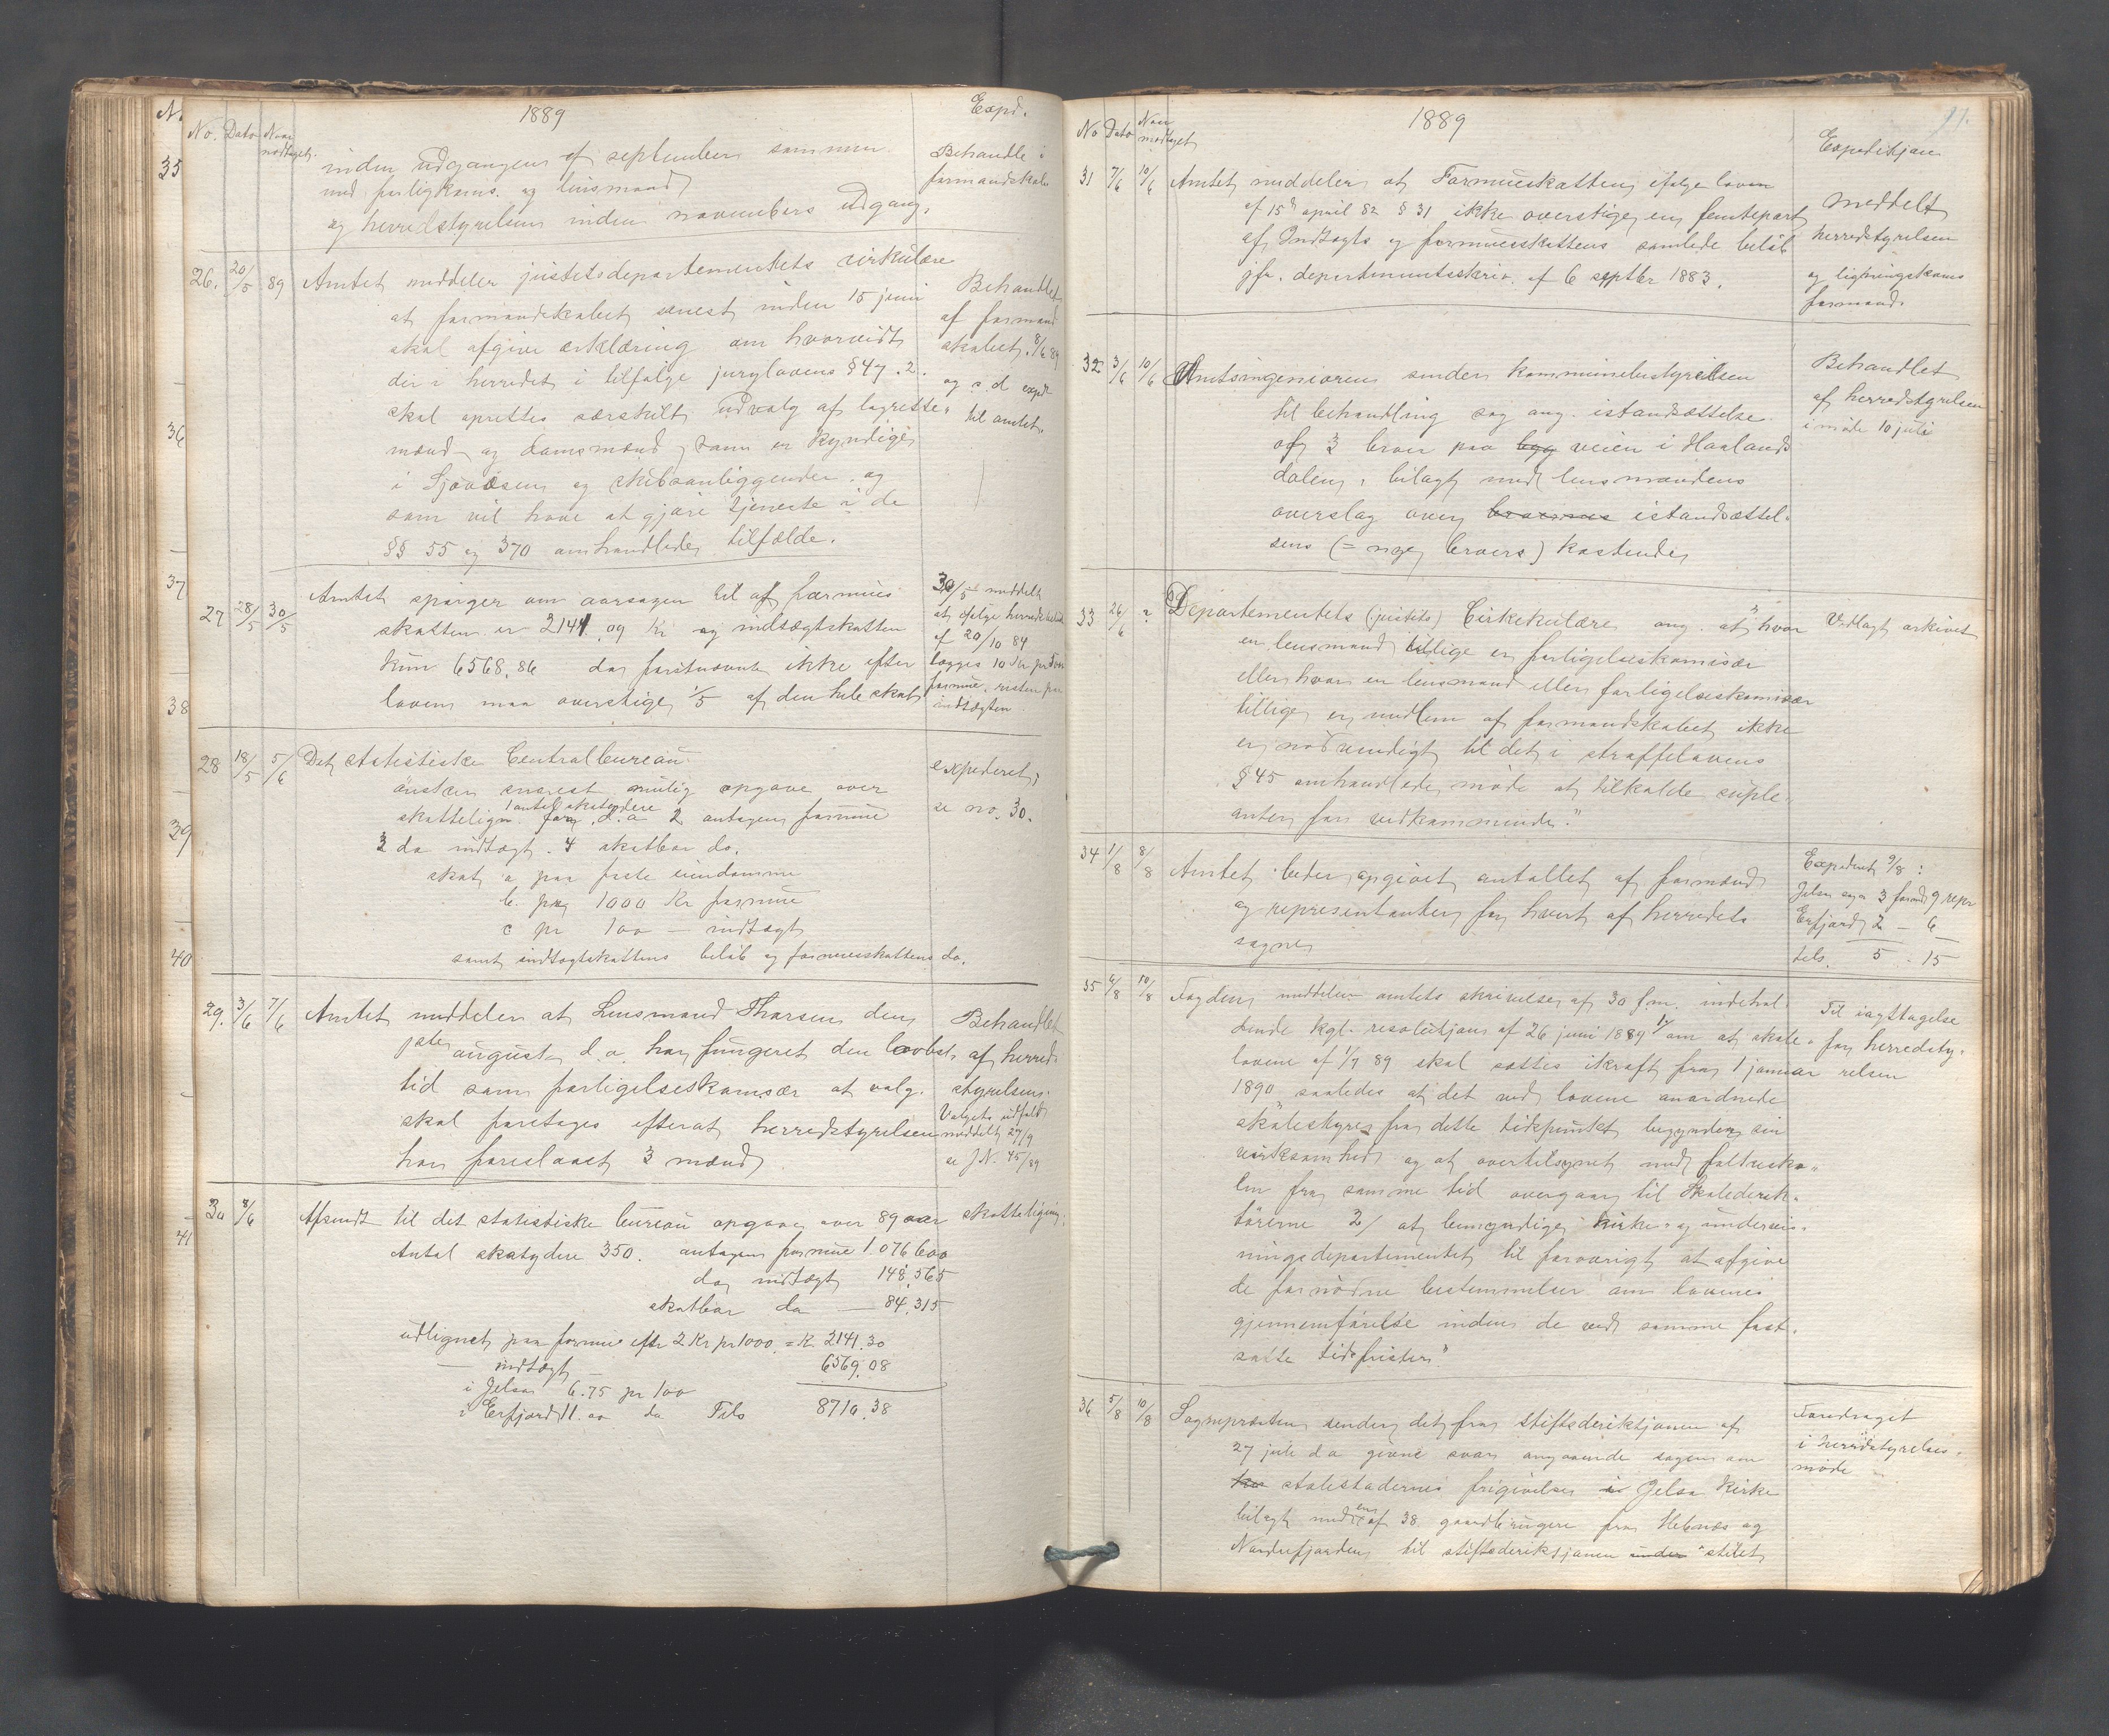 1889
Expd.
No. Dato Naar modtaget.
inden udgangen af september sammen
med forligkoms. og lensmand
og herredstyrelsen inden novembers udgang.
Behandle i
formandskab
26. 20/5 89 Amtet meddeler justitsdepartementets cirkulære
at formandskabet senest inden 15 juni
skal afgive erklæring om hvorvidt
der i herredet i tilfølge jurylovens § 47.2.
skal oprettes særskilt udvalg af lagrette-
mænd og domsmænd, som er kyndige
i Sjøvæsen og skibsanliggender og
som vil have at gjøre tjeneste i de
§§ 55 og 370 omhandlede tilfælde.
Behandlet
af formand
skabet 8/6 89
og s. d. exp
til amtet.
27 28/5 30/5 Amtet spørger om aarsagen til at formues
skatten er 2141,09 Kr og indtægtskatten
kun 6568,86 da førstnævnte ikke efter
loven maa overstige 1/5 af den hele skat
30/5 meddelt
at ifølge herredsbeslut
af 20/10 84
lægges 10 Kr pr
formue, resten paa
indtægten.
28 18/5 5/6 Det statistiske Centralbureau
ønsker snarest mulig opgave over
skattelign. for d. a. 1 antal skatydere 2 antagen formue
3 do indtægt. 4 skatbar do.
skat a paa faste eiendomme
b. pr 1000 Kr formue
c pr 100 — indtægt
samt indtægtskattens beløb og formuesskattens do.
expederet,
se no. 30.
29. 3/6 7/6 Amtet meddeler at Lensmand Thorsen den
1ste august d. a. har fungeret den lovbst.
tid som forligelseskomsær at valg
skal foretages efterat herredstyrelsen
har foreslaaet 3 mænd
Behandlet
af herred-
styrelsen.
Valgets udfald
meddelt 27/9
se J.N. 45/89
30 8/6 Afsendt til det statistiske bureau opgave over 89 aar skatteligning.
Antal skatydere 350. antagen formue 1.076 600
do indtægt 148,565
skatbar do — 84,315
udlignet paa formue efter 2 Kr pr 1000 = Kr. 2141.30
— indtægt — 6569.08
i Jelsa 6.75 pr 100
i Erfjord 11.00 do Tils 8710.38
35
36
37
38
39
40
41
1889
11.
No Dato Naar modtaget
Expeditjon
31 7/6 10/6 Amtet meddeler at Formueskatten ifølge loven
af 15de april 82 § 31 ikke overstige en femtepart
af Indtægts og formuesskattens samlede beløb
jfr. departementsskriv. af 6 septbr 1883.
Meddelt
herredstyrelsen
og ligningskoms
formand.
32 3/6 10/6 Amtsingeniøren sender kommunebestyrelsen
til behandling sag ang. istandsættelse
af 3 broer paa byg veien i Haalands
dalen, bilagt med lensmandens
overslag over broernes istandsættel-
sens (= nye broers) kostende
Behandlet
af herredstyrelsen
i møde 10 juli
33 26/6 ? Departementets (justits) Cirkekulære ang. at "hvor
en lensmand tillige er forligelseskomisær
eller hvor en lensmand eller forligelseskomisær
tillige er medlem af formandskabet ikke
er nødvendigt til det i straffelovens
§ 45 omhandlede møde at tilkalde suple-
anter for vedkommende."
Vedlagt arkivet
34 1/8 8/8 Amtet beder opgivet antallet af formænd
og representanter for hvert af herredets
sogne
Expederet 9/8:
Jelsa sogn 3 formd 9 repr
Erfjord 2 — 6
tils. 5 - 15
35 6/8 10/8 Fogden meddeler amtets skrivelse af 30 f.m. indehol-
dende kgl. resolutjon af 26 juni 1889 1/ om at skole-
lovene af 1/7 89 skal sættes ikraft fra 1 januar
1890 saaledes at det ved lovene anordnede
skolestyre fra dette tidspunktet begynder sin
virksomhed og at overtilsynet med folkesko-
len fra samme tid overgaar til Skoledirek-
tørerne 2/ at bemyndige kirke- og undervis-
ningsdepartementet til forøvrigt at afgive
de fornødne bestemmelser om lovenes
gjennemførelse inden de ved samme fast-
satte tidsfrister"
Til iagttagelse
for herredsty-
relsen
36 5/8 10/8 Sognepræsten sender det fra stiftsdirektjonen af
27 juli d a givne svar angaaende sagen om
stolestadernes frigivelse i Jelsa Kirke
bilagt med en af 38 gaardbrugere fra Hebnes og
Nordrefjorden til stiftsdirektjonen under stilet
Foredraget
i herredstyrelses-
møde